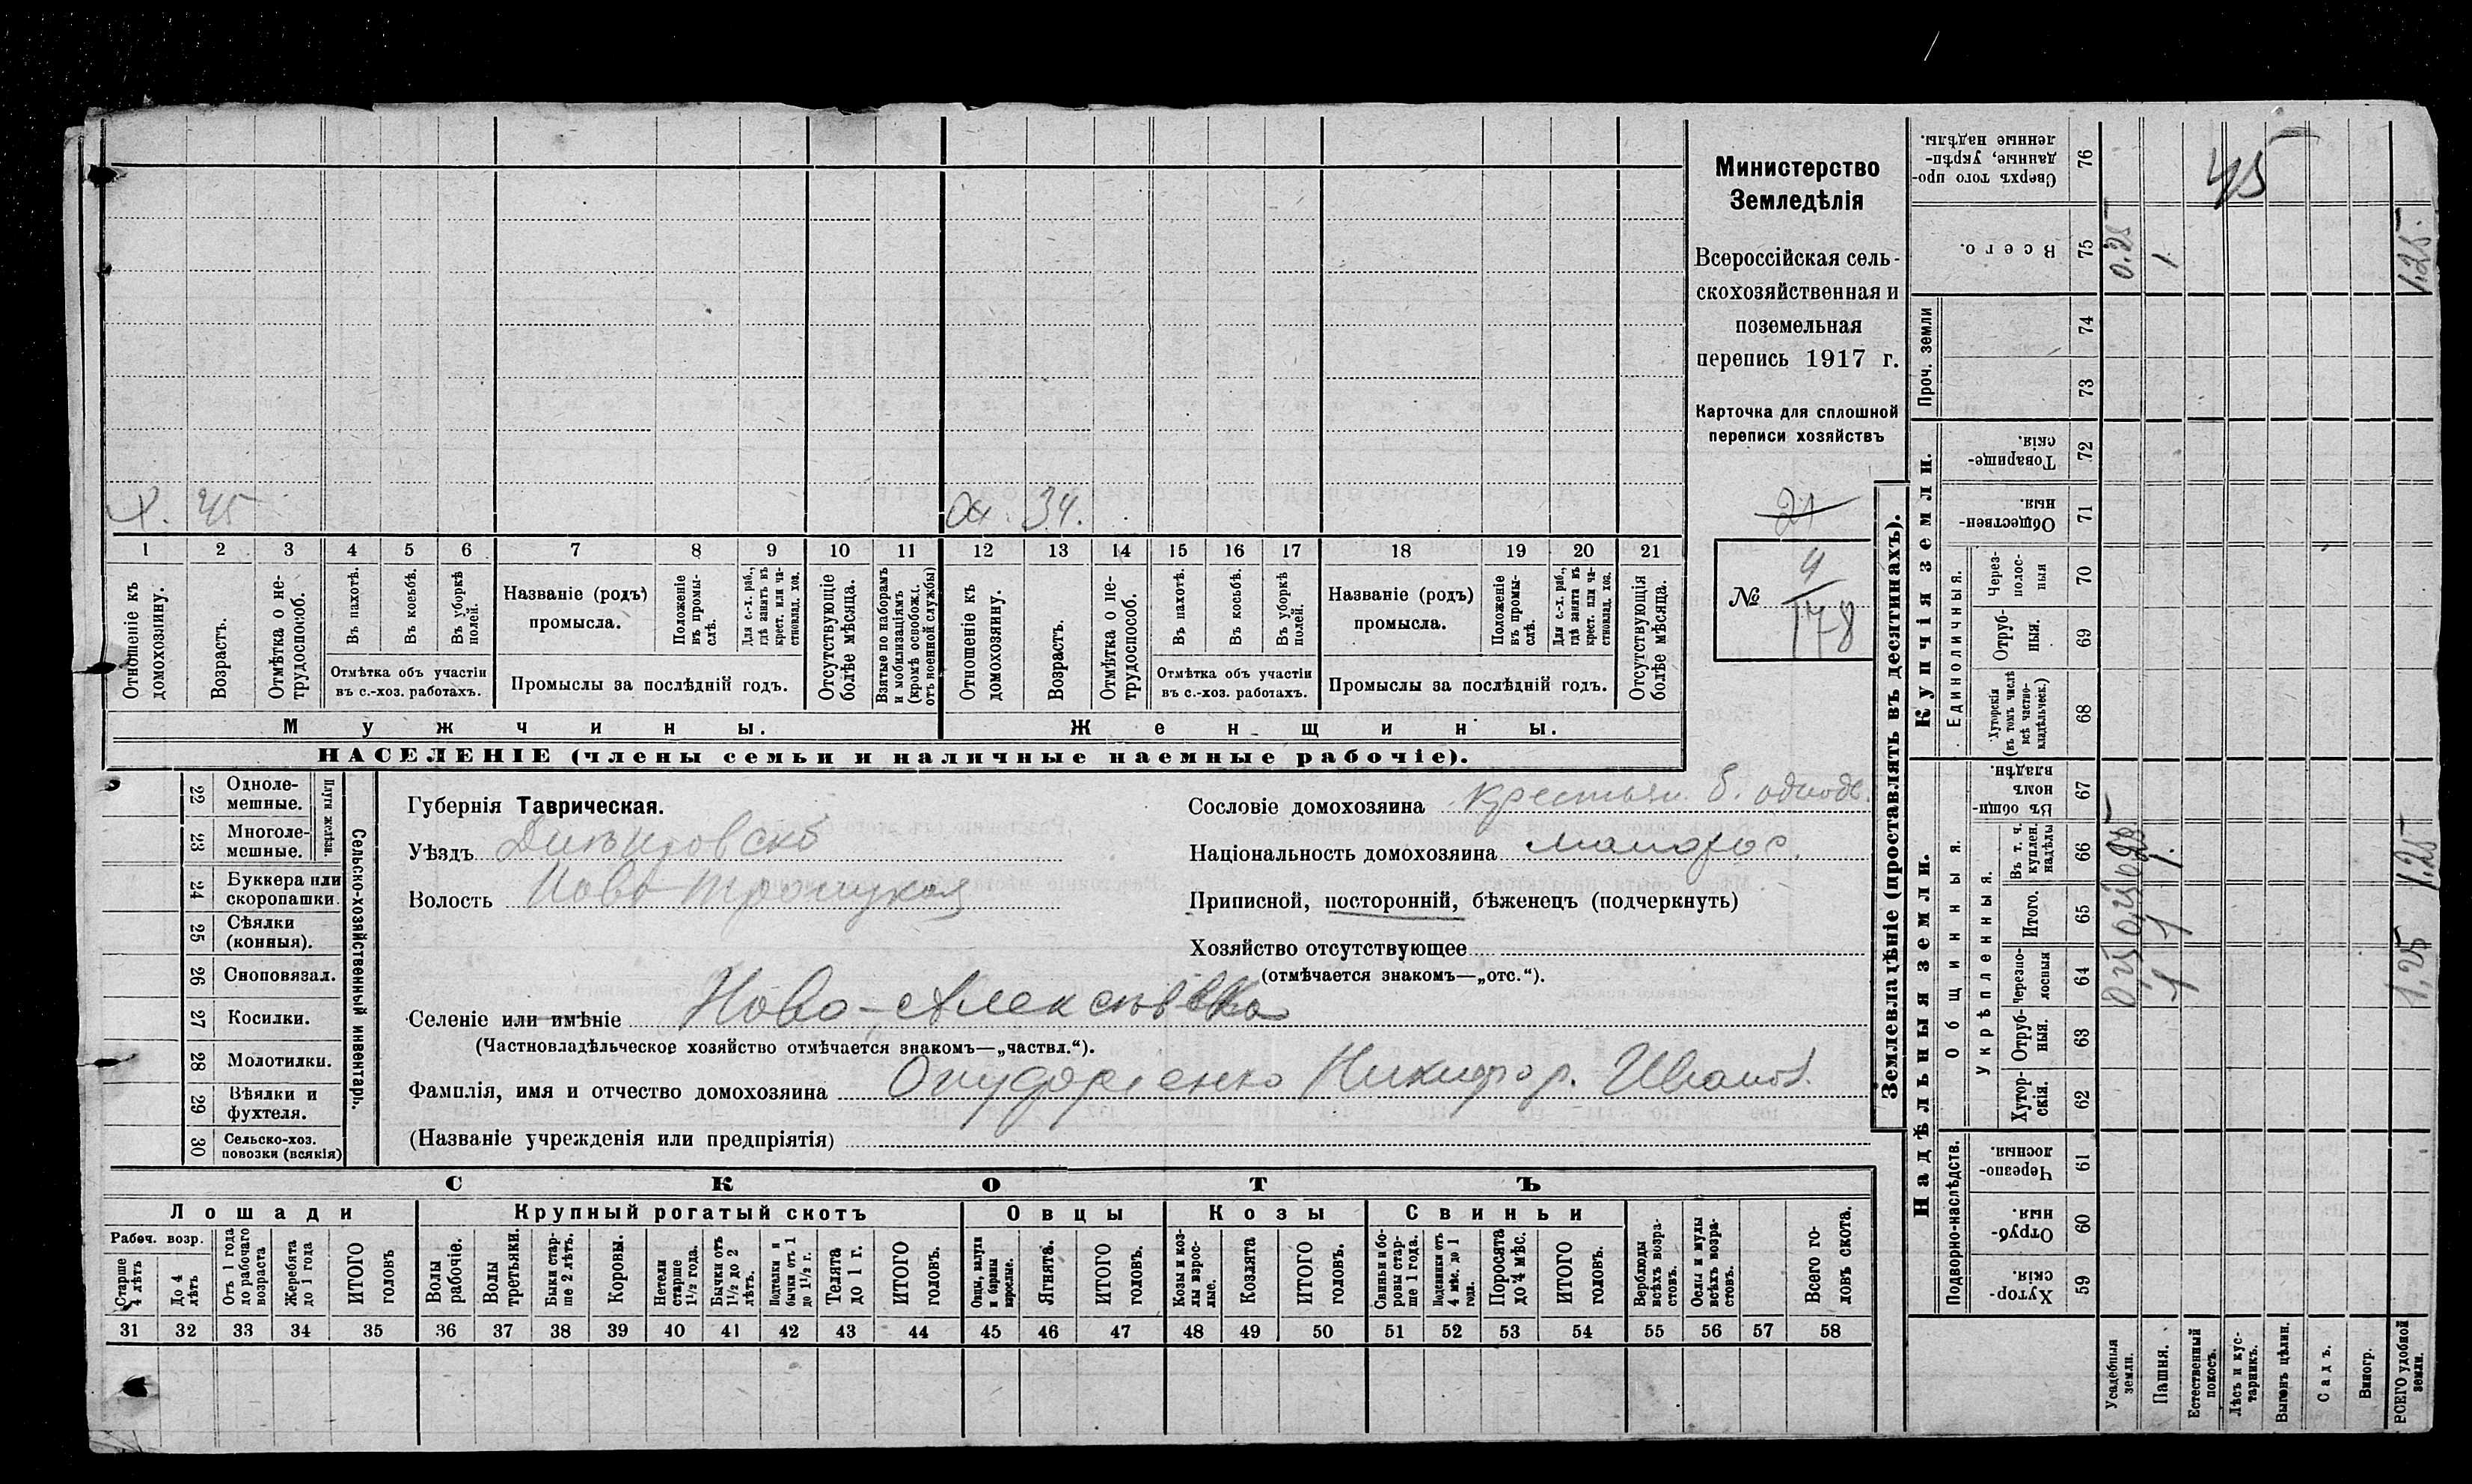 Х. 45
Ох. 34.
1 2 3 4 5 6 7 8 9 10 11 12 13 14 15 16 17 18 19 20 21
Отношеніе къ домохозяину.
Возрастъ.
Отмѣтка о не-трудоспособ.
Въ пахотѣ.
Въ косьбѣ.
Въ уборкѣ полей.
Отмѣтка объ участіи въ с.-хоз. работахъ.
Названіе (родъ) промысла.
Положеніе въ промы-слѣ.
Для с.-х. раб., гдѣ занятъ въ крест. или ча-стновлад. хоз.
Промыслы за послѣдній годъ.
Отсутствующіе болѣе мѣсяца.
Взятые по наборамъ и мобилизаціямъ (кромѣ освобожд. отъ военной службы)
Отношеніе къ домохозяину.
Возрастъ.
Отмѣтка о не-трудоспособ.
Въ пахотѣ.
Въ косьбѣ.
Въ уборкѣ полей.
Отмѣтка объ участіи въ с.-хоз. работахъ.
Названіе (родъ) промысла.
Положеніе въ промы-слѣ.
Для с.-х. раб., гдѣ занята въ крест. или ча-стновлад. хоз.
Промыслы за послѣдній годъ.
Отсутствующія болѣе мѣсяца.
Мужчины.
Женщины.
НАСЕЛЕНІЕ (члены семьи и наличные наемные рабочіе).
Министерство
Земледѣлія
Всероссійская сель-
скохозяйственная и
поземельная
перепись 1917 г.
Карточка для сплошной
переписи хозяйствъ
21
№ 4
178
Сельско-хозяйственный инвентарь.
Плуги желѣзн.
22 Одноле-мешные.
23 Многоле-мешные.
24 Буккера или скоропашки.
25 Сѣялки (конныя).
26 Сноповязал.
27 Косилки.
28 Молотилки.
29 Вѣялки и фухтеля.
30 Сельско-хоз. повозки (всякія)
Губернія Таврическая.
Уѣздъ Днѣпровскій
Волость Ново Троицкая
Сословіе домохозяина крестьян. б. однодв.
Національность домохозяина малорос.
Приписной, посторонній, бѣженецъ (подчеркнуть)
Хозяйство отсутствующее
(отмѣчается знакомъ—„отс.“).
Селеніе или имѣніе Ново-Алексѣевка
(Частновладѣльческое хозяйство отмѣчается знакомъ—„частвл.“).
Фамилія, имя и отчество домохозяина Никифор. Иванов.
(Названіе учрежденія или предпріятія)
СКОТЪ
Лошади
Крупный рогатый скотъ
Овцы
Козы
Свиньи
Рабоч. возр.
Старше 4 лѣтъ
До 4 лѣтъ
Отъ 1 года до рабочаго возраста
Жеребята до 1 года
ИТОГО головъ
Волы рабочіе.
Волы третьяки.
Быки стар-ше 2 лѣтъ.
Коровы.
Нетели старше 1½ года.
Бычки отъ 1½ до 2 лѣтъ.
Подтелки и бычки отъ 1 до 1½ г.
Телята до 1 г.
ИТОГО головъ.
Овцы, валухи и бараны взрослые.
Ягнята.
ИТОГО головъ.
Козы и коз-лы взрос-лые.
Козлята
ИТОГО головъ.
Свиньи и бо-ровы стар-ше 1 года.
Подсвинки отъ 4 мѣс. до 1 года.
Поросята до 4 мѣс.
ИТОГО головъ.
Верблюды всѣхъ возра-стовъ.
Ослы и мулы всѣхъ возра-стовъ.
Всего го-ловъ скота.
31 32 33 34 35 36 37 38 39 40 41 42 43 44 45 46 47 48 49 50 51 52 53 54 55 56 57 58
Землевладѣніе (проставлять въ десятинахъ).
Купчія земли.
Надѣльныя земли.
Сверхъ того про-данные, укрѣп-ленные надѣлы. 76
45
Всего. 75 0.25 1 1,25.
Проч. земли
74
73
Товарище-скія. 72
Обществен-ныя. 71
Единоличныя.
Через-полос-ныя 70
Отруб-ныя. 69
Хуторскія (въ томъ числѣ всѣ частно-владѣльческ.) 68
Общинныя.
Въ общи-номъ владѣн. 67
Укрѣпленныя.
Въ т. ч. куплен. надѣлы 66 0,25 1. 1,25
Итого. 65 1
Черезпо-лосныя 64 1 1,25
Отруб-ныя. 63
Хутор-скія. 62
Подворно-наслѣдств.
Черезпо-лосныя. 61
Отруб-ныя. 60
Хутор-скія. 59
Усадебныя земли.
Пашня.
Естественный покосъ.
Лѣсъ и кус-тарникъ.
Выгонъ цѣлин.
Садъ.
Виногр.
ВСЕГО удобной земли.